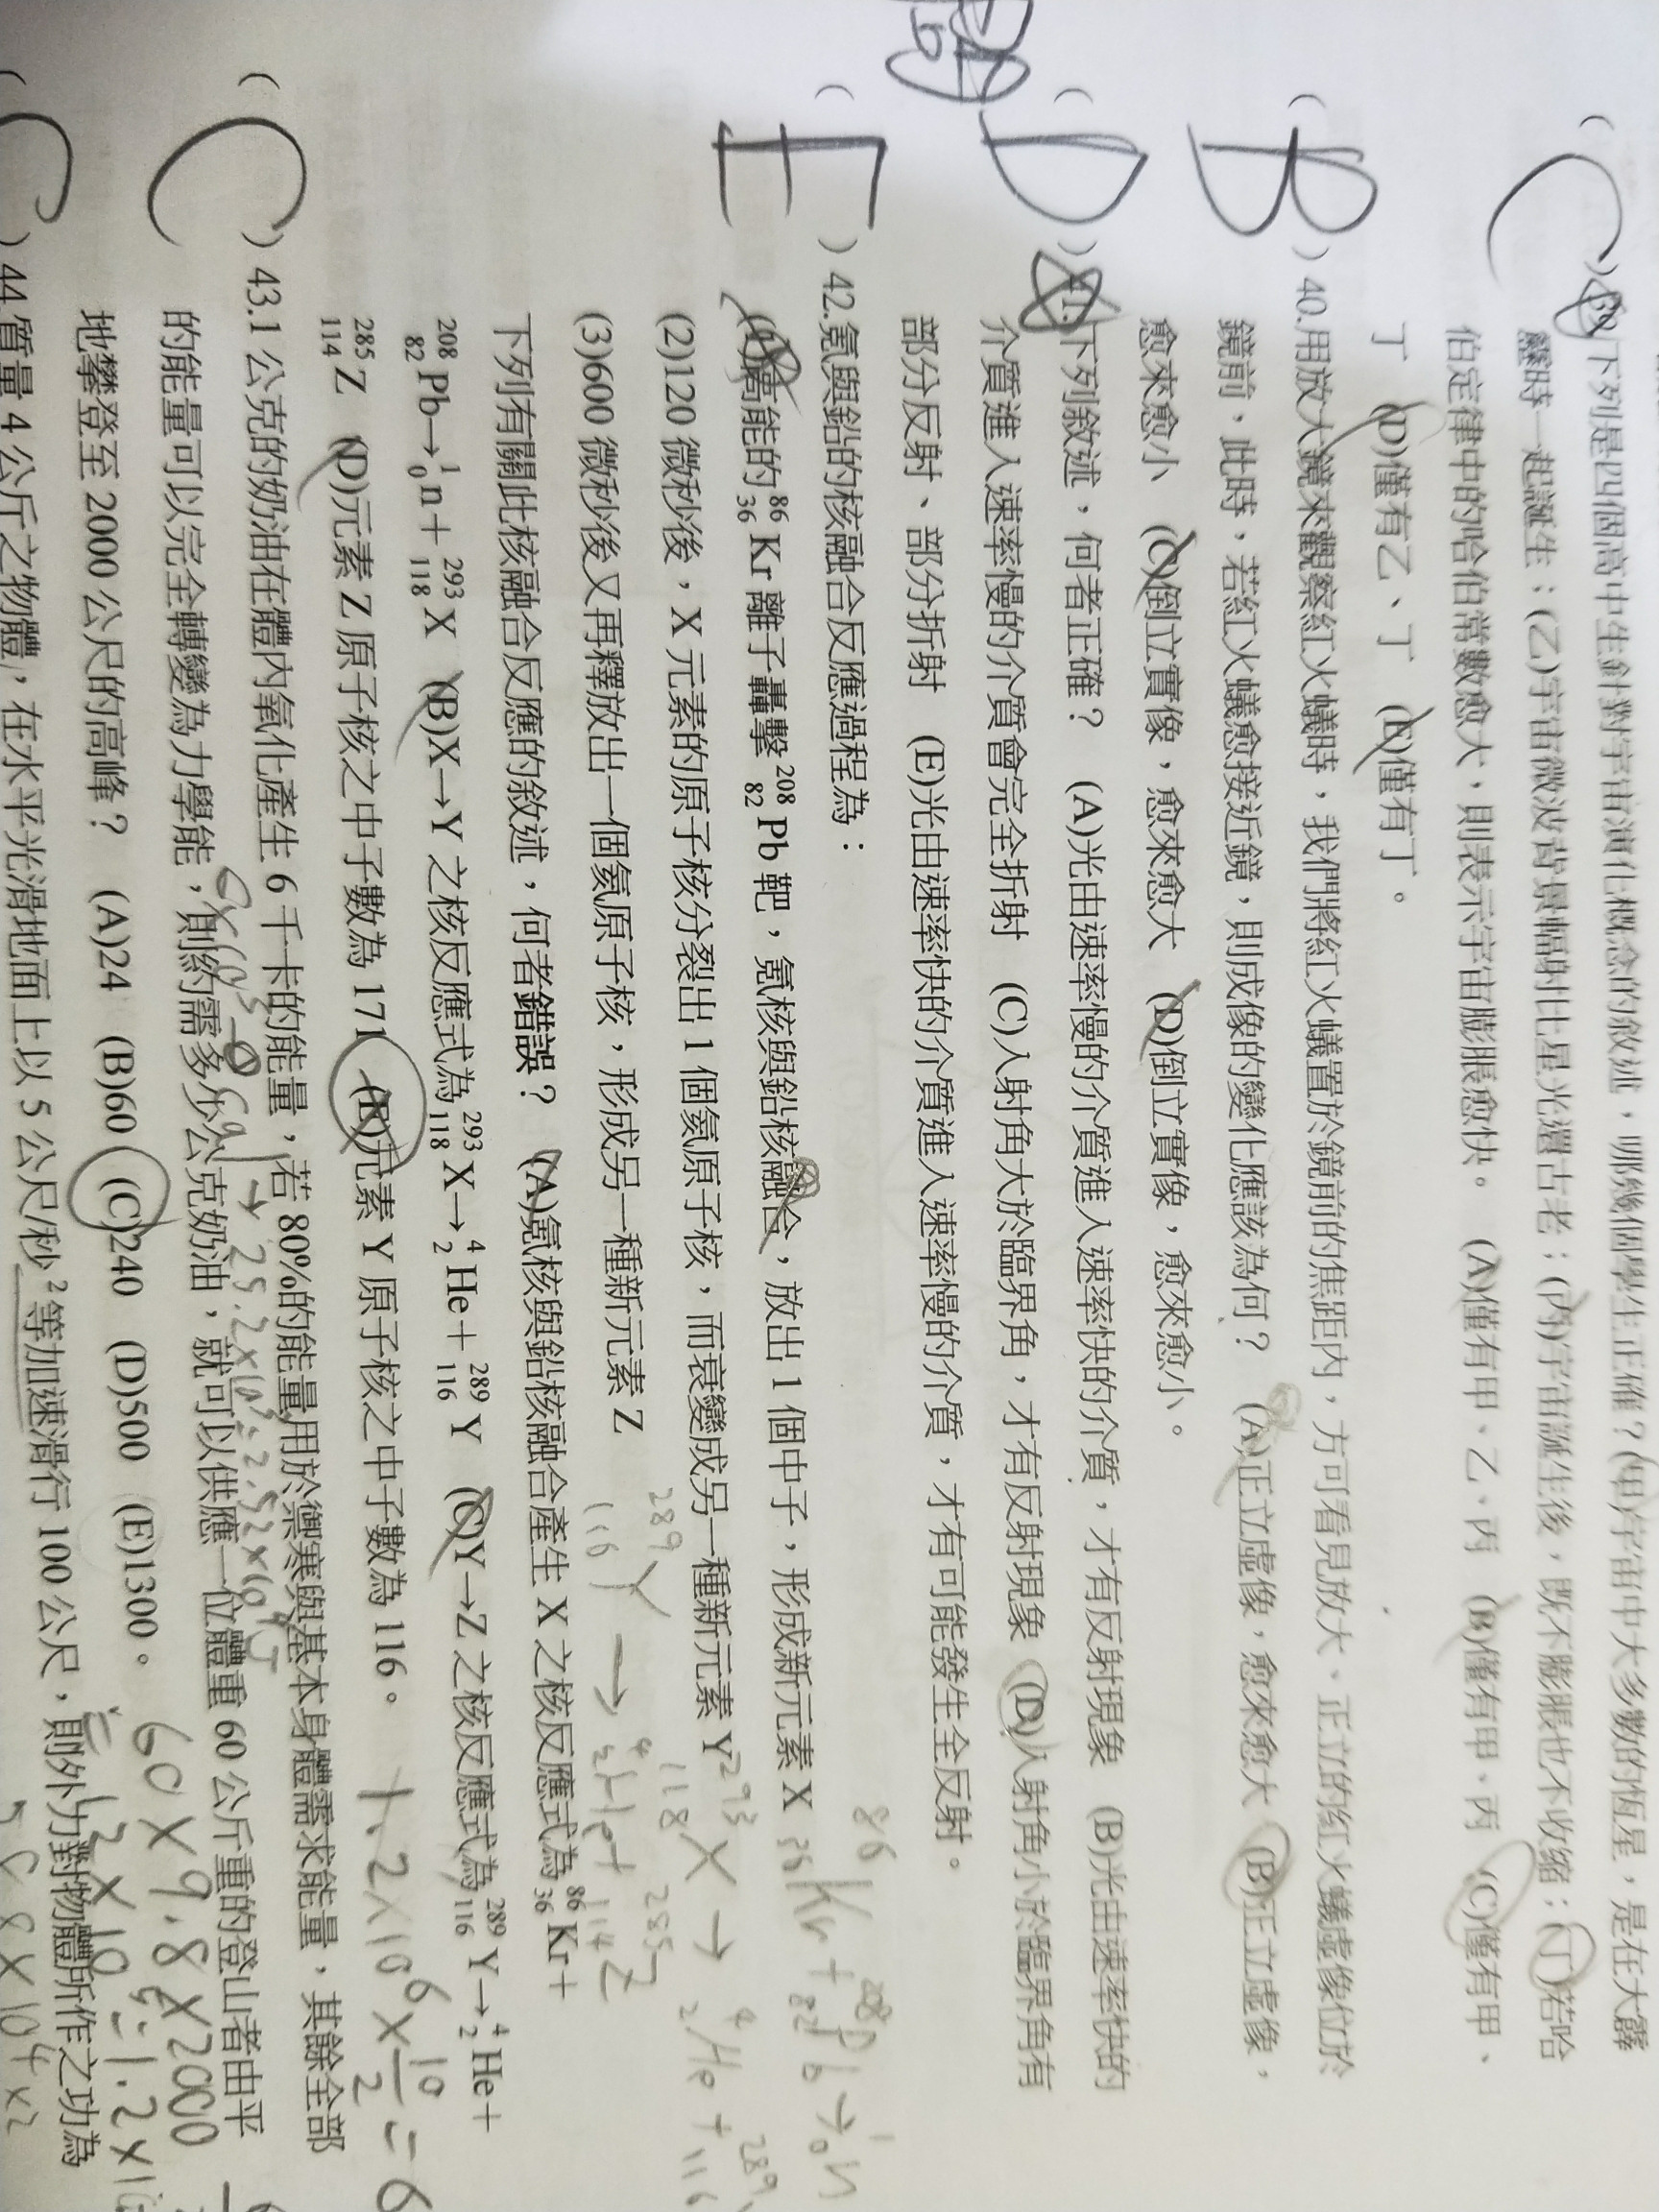 ( C )39.下列是四個高中生針對宇宙演化概念的敘述，哪幾個學生正確？(甲)宇宙中大多數的恆星，是在大霹
靂時一起誕生；(乙)宇宙微波背景輻射比星光還古老；(丙)宇宙誕生後，既不膨脹也不收縮；(丁)若哈
伯定律中的哈伯常數愈大，則表示宇宙膨脹愈快。 (A)僅有甲、乙、丙 (B)僅有甲、丙 (C)僅有甲、
丁 (D)僅有乙、丁 (E)僅有丁。
( B )40.用放大鏡來觀察紅火蟻時，我們將紅火蟻置於鏡前的焦距內，方可看見放大、正立的紅火蟻虛像位於
鏡前，此時，若紅火蟻愈接近鏡，則成像的變化應該為何？ (A)正立虛像，愈來愈大 (B)正立虛像，
愈來愈小 (C)倒立實像，愈來愈大 (D)倒立實像，愈來愈小。
( D )41.下列敘述，何者正確？ (A)光由速率慢的介質進入速率快的介質，才有反射現象 (B)光由速率快的
介質進入速率慢的介質會完全折射 (C)入射角大於臨界角，才有反射現象 (D)入射角小於臨界角有
部分反射、部分折射 (E)光由速率快的介質進入速率慢的介質，才有可能發生全反射。
( E )42.氪與鉛的核融合反應過程為：
(1)高能的 ⁸⁶₃₆Kr 離子轟擊 ²⁰⁸₈₂Pb 靶，氪核與鉛核融合，放出 1 個中子，形成新元素 X
⁸⁶₃₆Kr + ²⁰⁸₈₂Pb → ¹₀n
(2)120 微秒後，X 元素的原子核分裂出 1 個氦原子核，而衰變成另一種新元素 Y
²⁹³₁₁₈X → ⁴₂He + ²⁸⁹₁₁₆
(3)600 微秒後又再釋放出一個氦原子核，形成另一種新元素 Z
²⁸⁹₁₁₆Y → ⁴₂He + ²⁸⁵₁₁₄Z
下列有關此核融合反應的敘述，何者錯誤？ (A)氪核與鉛核融合產生 X 之核反應式為 ⁸⁶₃₆Kr＋
²⁰⁸₈₂Pb→¹₀n＋²⁹³₁₁₈X (B)X→Y 之核反應式為 ²⁹³₁₁₈X→⁴₂He＋²⁸⁹₁₁₆Y (C)Y→Z 之核反應式為 ²⁸⁹₁₁₆Y→⁴₂He＋
²⁸⁵₁₁₄Z (D)元素 Z 原子核之中子數為 171 (E)元素 Y 原子核之中子數為 116。
1.2×10⁶×10/2=6
( C )43.1 公克的奶油在體內氧化產生 6 千卡的能量，若 80%的能量用於禦寒與基本身體需求能量，其餘全部
的能量可以完全轉變為力學能，則約需多少公克奶油，就可以供應一位體重 60 公斤重的登山者由平
地攀登至 2000 公尺的高峰？ (A)24 (B)60 (C)240 (D)500 (E)1300。
60×9.8×2000
( C )44.質量 4 公斤之物體，在水平光滑地面上以 5 公尺/秒² 等加速滑行 100 公尺，則外力對物體所作之功為